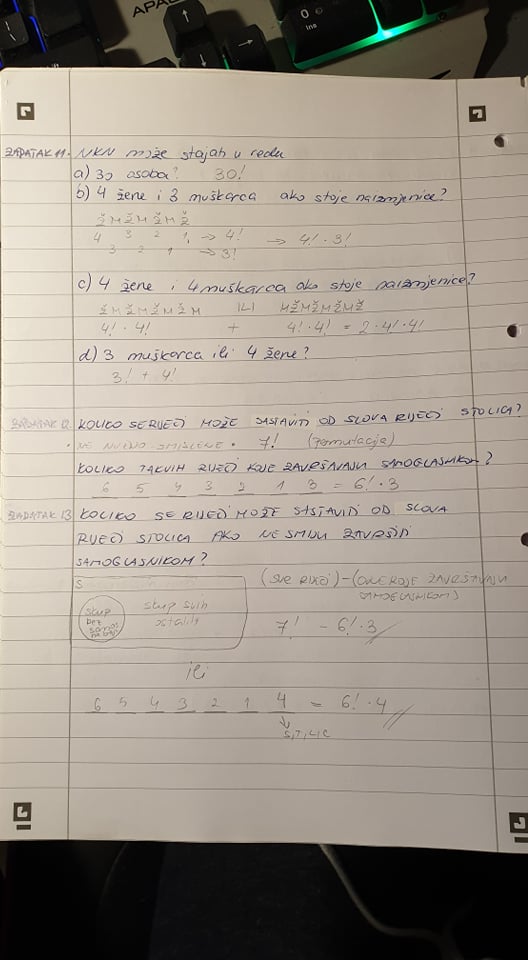 APA
0
Ins
ZADATAK 11. NKN može stajati u redu
a) 30 osoba? 30!
b) 4 žene i 3 muškarca ako stoje naizmjenice?
Ž M Ž M Ž M Ž
4 3 2 1 → 4! → 4! · 3!
3 2 1 → 3!
c) 4 žene i 4 muškarca ako stoje naizmjenice?
Ž M Ž M Ž M Ž M ILI M Ž M Ž M Ž M Ž
4! · 4! + 4! · 4! = 2 · 4! · 4!
d) 3 muškarca ili 4 žene?
3! + 4!
ZADATAK 12. KOLIKO SE RIJEČI MOŽE SASTAVITI OD SLOVA RIJEČI STOLICA?
· NE NUŽNO SMISLENE · 7! (permutacije)
KOLIKO TAKVIH RIJEČI KOJE ZAVRŠAVAJU SAMOGLASNIKOM?
6 5 4 3 2 1 3 = 6! · 3
ZADATAK 13 KOLIKO SE RIJEČI MOŽE SASTAVITI OD SLOVA
RIJEČI STOLICA AKO NE SMIJU ZAVRŠITI
SAMOGLASNIKOM?
S
(SVE RIJEČI) - (ONE KOJE ZAVRŠAVAJU
SAMOGLASNIKOM)
skup bez samog. na kraju
skup svih ostalih
7! - 6! · 3
ili
6 5 4 3 2 1 4 = 6! · 4
S, T, L, C